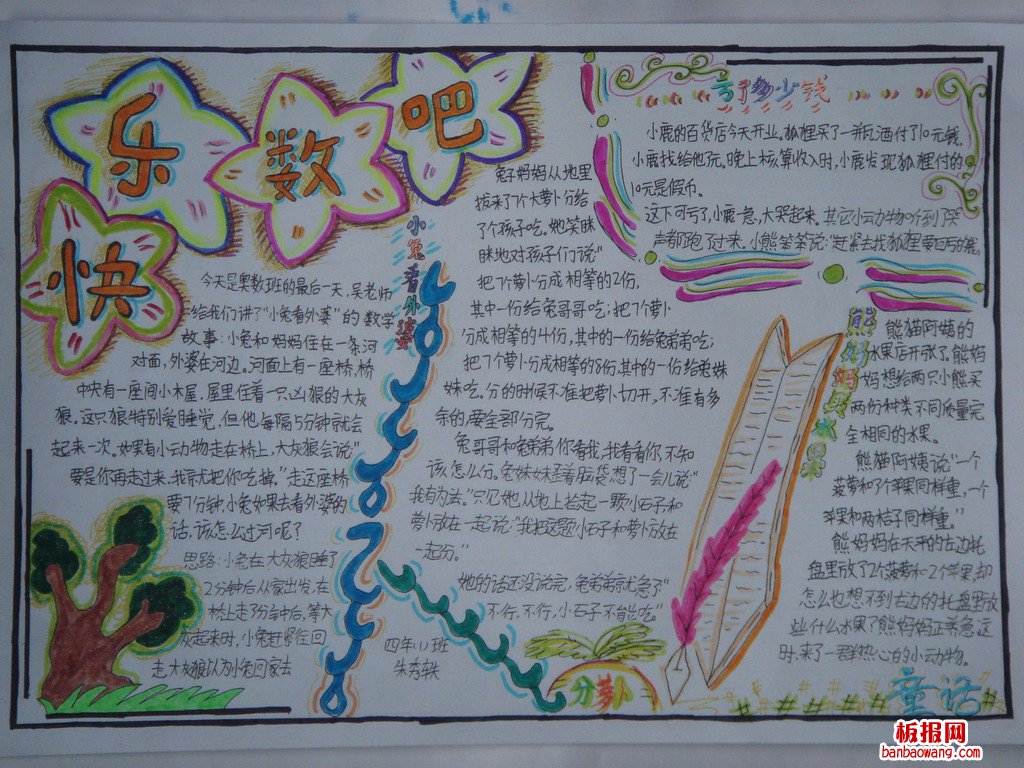 快乐数吧
小兔看外婆
今天是奥数班的最后一天,吴老师
给我们讲了“小兔看外婆”的数学
故事:小兔和妈妈住在一条河
对面,外婆住河边。河面上有一座桥,桥
中央有一座间小木屋,屋里住着一只凶狠的大灰
狼。这只狼特别爱睡觉,但他每隔5分钟就会
起来一次,如果有小动物走在桥上,大灰狼会说“
要是你再走过来,我就把你吃掉。”走这座桥
要7分钟,小兔如果去看外婆的
话,该怎么过河呢?
思路:小兔在大灰狼睡了
2分钟后从家出发,在
桥上走3分钟后,等大
灰起来时,小兔赶紧往回
走大灰狼以为小兔回家去
兔子妈妈从地里
拔来了7个大萝卜分给
了个孩子吃。她笑眯
眯地对孩子们说“
把7个萝卜分成相等的2份,
其中一份给兔哥哥吃;把7个萝卜
分成相等的4份,其中的一份给兔弟弟吃;
把7个萝卜分成相等的8份,其中的一份给兔妹
妹吃。分的时候不准把萝卜切开,不准有多
余的,要全部分完。
兔哥哥和兔弟弟你看我,我看看你,不知
该怎么分。兔妹妹歪着脑袋想了一会儿说“
我有办法。”只见她从地上捡起一颗小石子和
萝卜放在一起说:“我把这颗小石子和萝卜放在
一起分。”
她的话还没说完,兔弟弟就急了“
不行,不行,小石子不能吃。”
四年(1)班
分萝卜
亏了多少钱
小鹿的百货店今天开业。狐狸买了一瓶酒付了10元钱,
小鹿找给他元。晚上核算收入时,小鹿发现狐狸付的
10元是假币。
这下可亏了,小鹿一急,大哭起来。其它小动物听到了哭
声都跑了过来。小熊笨笨说:“赶紧去找狐狸要回亏的钱。
熊妈妈买水果
熊猫阿姨的
水果店开张了。熊妈
妈想给两只小熊买
两份种类不同质量完
全相同的水果。
熊猫阿姨说“一个
菠萝和7个苹果同样重,一个
苹果和两桔子同样重。”
熊妈妈在天平的左边托
盘里放了2个菠萝和2个苹果,却
怎么也想不到右边的托盘里放
些什么水果了熊妈妈正着急这
时,来了一群热心的小动物。
童话
板报网
banbaowang.com